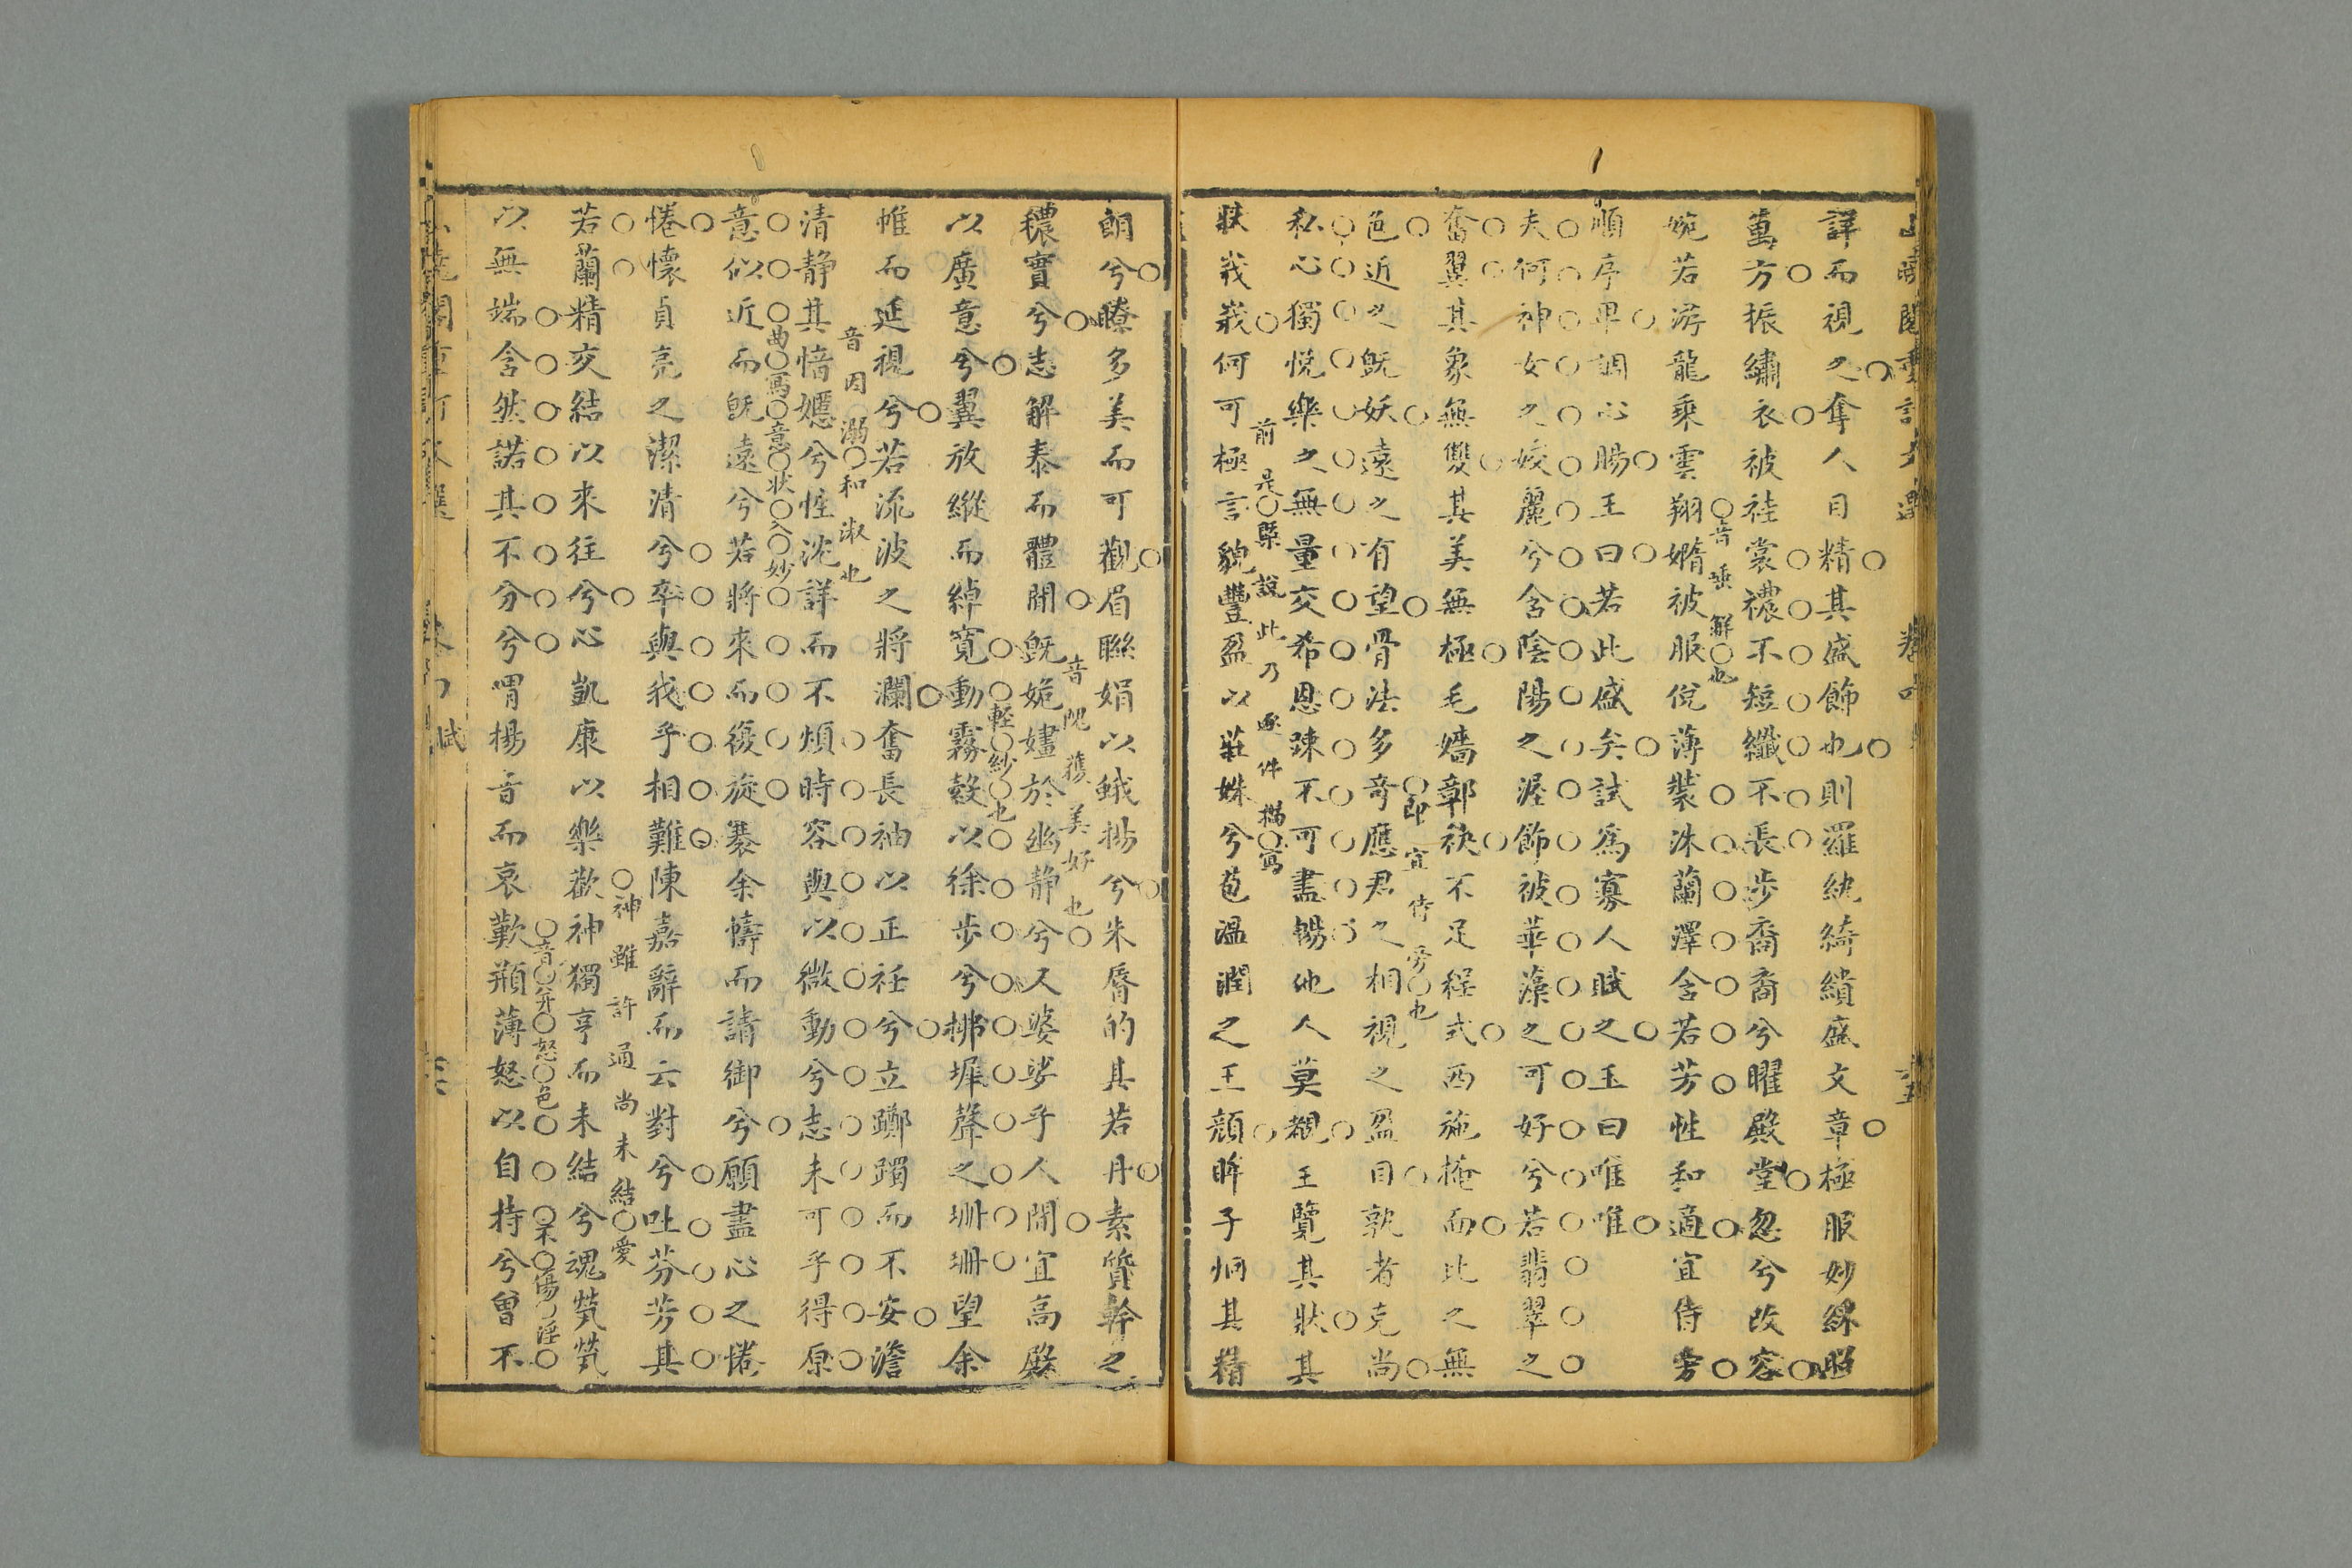 詳而視之奪人目精其盛飾也則羅紈綺繢盛文章極服妙綵照
萬方振繡衣被袿裳襛不短纖不長步裔裔兮曜殿堂忽兮改容
音唾觧也
婉若游龍乘雲翔嫷被服侻薄裝沐蘭澤含若芳性和適宜侍旁
順序卑調心腸王曰若此盛矣試為寡人賦之玉曰唯唯
夫何神女之姣麗兮含陰陽之渥飾被華藻之可好兮若翡翠之
奮翼其象無雙其美無極毛嬙鄣袂不足程式西施掩面比之無
即宜侍旁也
色近之既妖遠之有望骨法多奇應君之相視之盈目孰者克尚
私心獨悅樂之無量交希恩踈不可盡暢他人莫覩王覽其狀其
前是槩說此乃逐件描寫
狀峩峩何可極言貌豐盈以莊姝兮苞溫潤之玉顏眸子炯其精
朗兮瞭多美而可觀眉聯娟以蛾揚兮朱脣的其若丹素質幹之
音隗獲美好也
穠實兮志解泰而體閒既姽嫿於幽静兮又婆娑乎人間宜高殿
輕紗也
以廣意兮翼放縱而綽寬動霧縠以徐步兮拂墀聲之珊珊望余
帷而延視兮若流波之將瀾奮長袖以正衽兮立躑躅而不安澹
音因溺和淑也
清静其愔嫕兮性沈詳而不煩時容與以微動兮志未可乎得原
曲寫意狀入妙
意似近而既遠兮若將來而復旋褰余幬而請御兮願盡心之惓
惓懷貞亮之潔清兮卒與我乎相難陳嘉辭而云對兮吐芬芳其
神雖許通尚未結愛
若蘭精交結以來往兮心凱康以樂歡神獨亨而未結兮魂煢煢
音并怒色不傷淫
以無端含然諾其不分兮喟揚音而哀歎頩薄怒以自持兮曾不